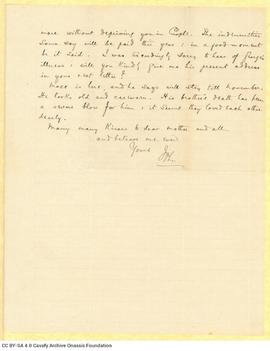 more without depriving you in Cople. The indemnities
some say will be paid this year & in a good moment
be it said. I was exceedingly sorry to hear of George's
illness & will you kindly give me his present address
in your next letter?
Moss is here, and he says will stay till November.
He looks old and careworn. His brother's death has been
a severe blow for him & it seems they loved each other
dearly.
Many many kisses to dear mother and all
and believe me ever
Yours
CC BY-SA 4.0 Cavafy Archive Onassis Foundation